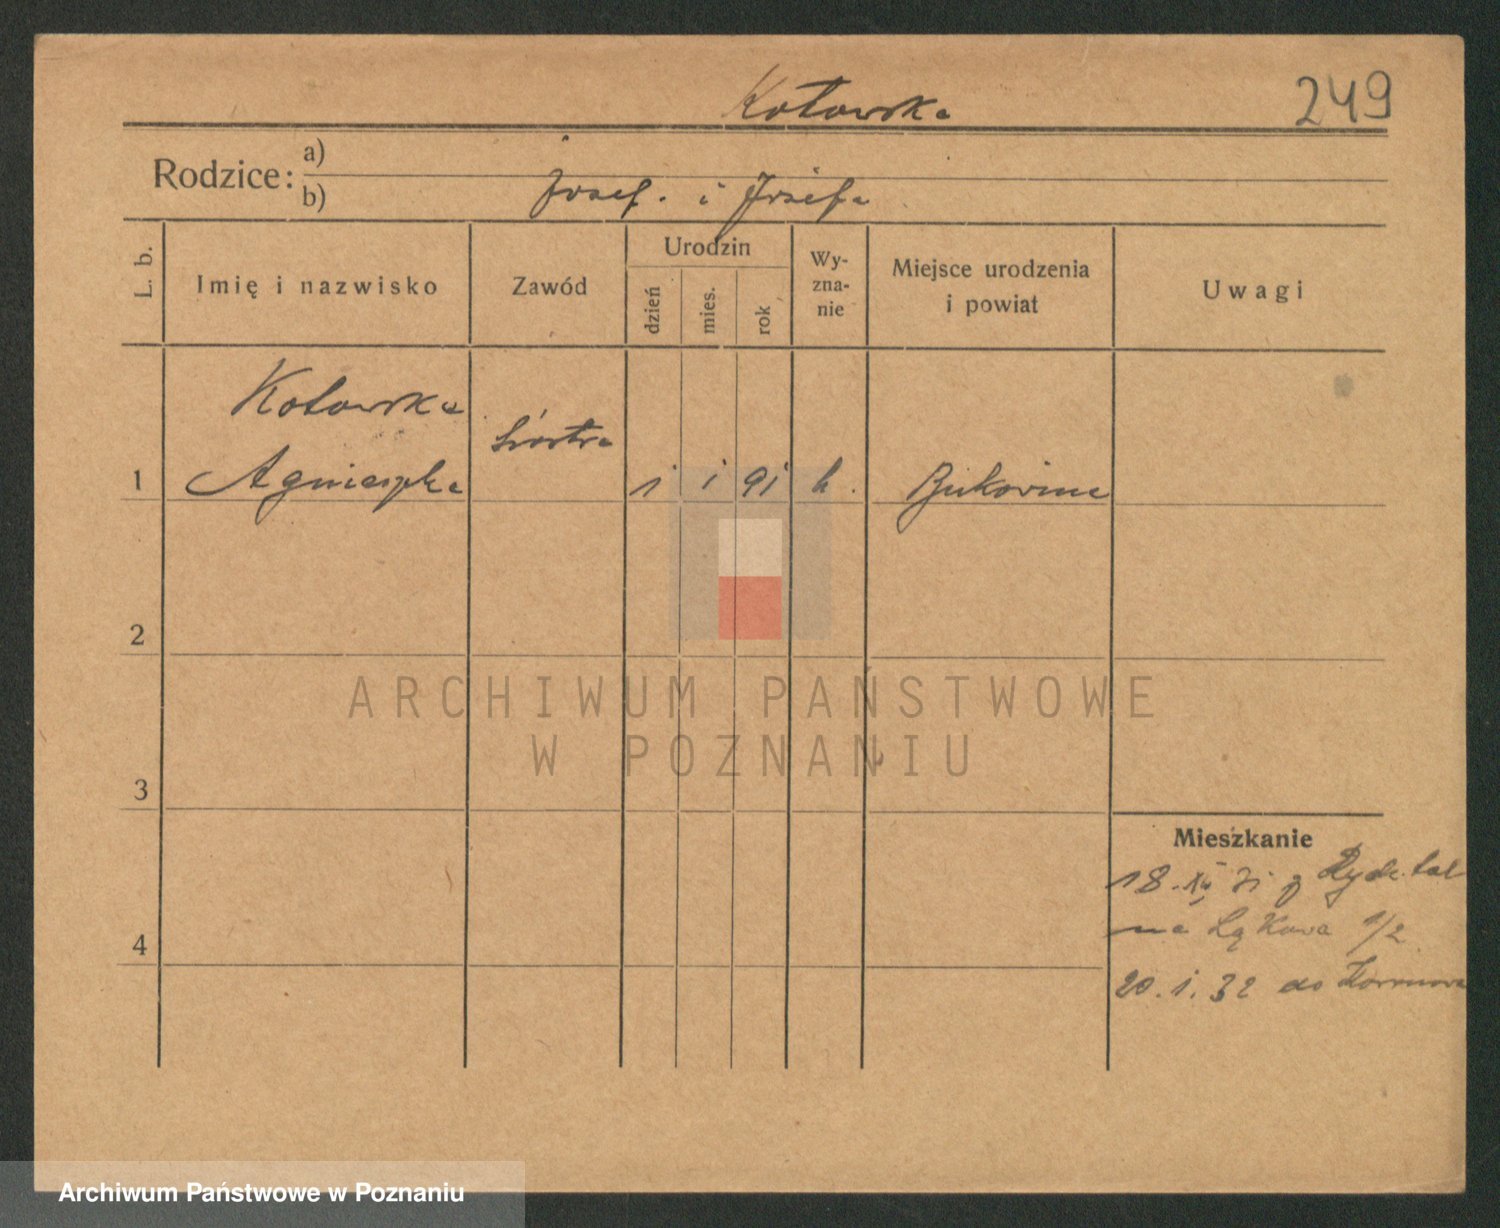 Kotowska
249
Rodzice:
a)
b) Józef. i Józefa
L. b.
Imię i nazwisko
Zawód
Urodzin
dzień
mies.
rok
Wy-
zna-
nie
Miejsce urodzenia
i powiat
Uwagi
Kotowska
Siostra
1 Agnieszka 1 1 91 k. Bukowina
2
ARCHIWUM PAŃSTWOWE
W POZNANIU
3
Mieszkanie
18. XII 31 z
na Łąkowa 1/2
4
20. 1. 32 do
Archiwum Państwowe w Poznaniu